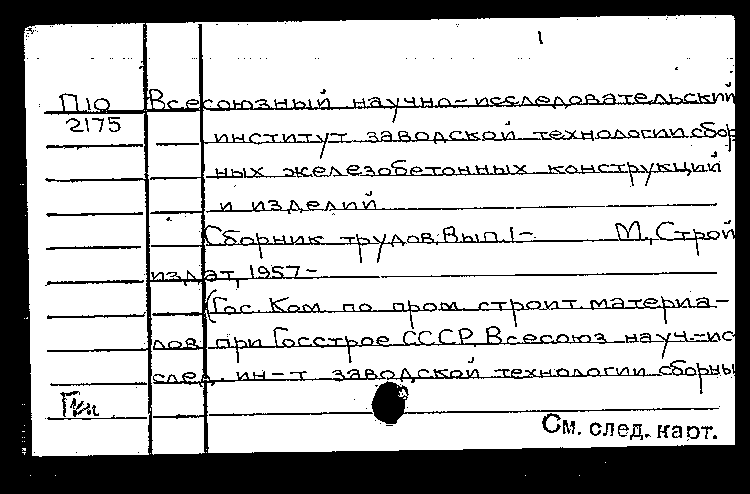 1
П10 Всесоюзный научно-исследовательский
2175 институт заводской технологии сбор
ных железобетонных конструкций
и изделий
Сборник трудов. Вып. 1- М., Строй
издат, 1957-
(Гос. Ком. по пром. строит. материа-
лов при Госстрое СССР. Всесоюз науч-ис
след. ин-т заводской технологии сборны
См. след. карт.